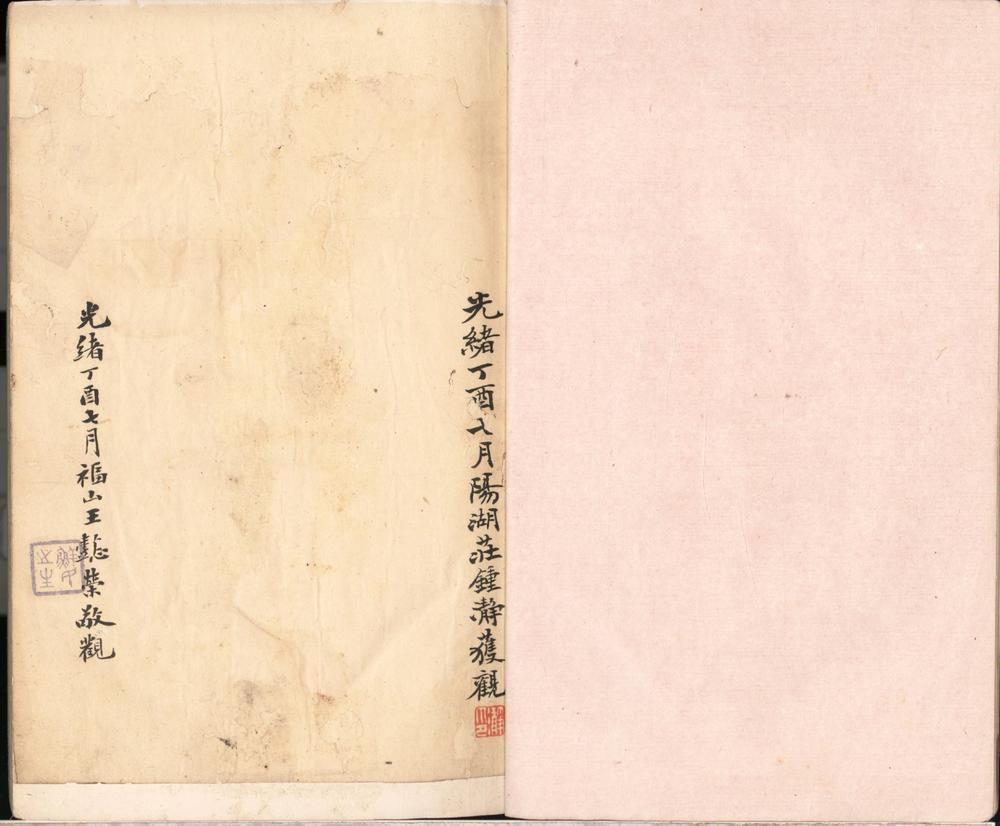 光緒丁酉七月陽湖莊鍾濟獲觀
光緒丁酉七月福山王懿榮敬觀